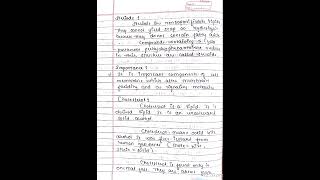 Steroids :
Steroids are nonsaponifiable lipids
They cannot yield soap on hydrolysis
because they donot contain fatty Acid.
Compounds containing
perhydrocyclopentanophenanthrene nucleus
in their structure are called steroids.
Importance :
It is Important component of cell
membrane which alter membrane
fluidity and as signaling molecule
Cholesterol :
Cholesterol is a lipid. It is
derived lipid. It is an unsaturated
solid alcohol.
Cholesterol means solid
alcohol
human
Cholesterol is found only in
animal fats. They are absent from